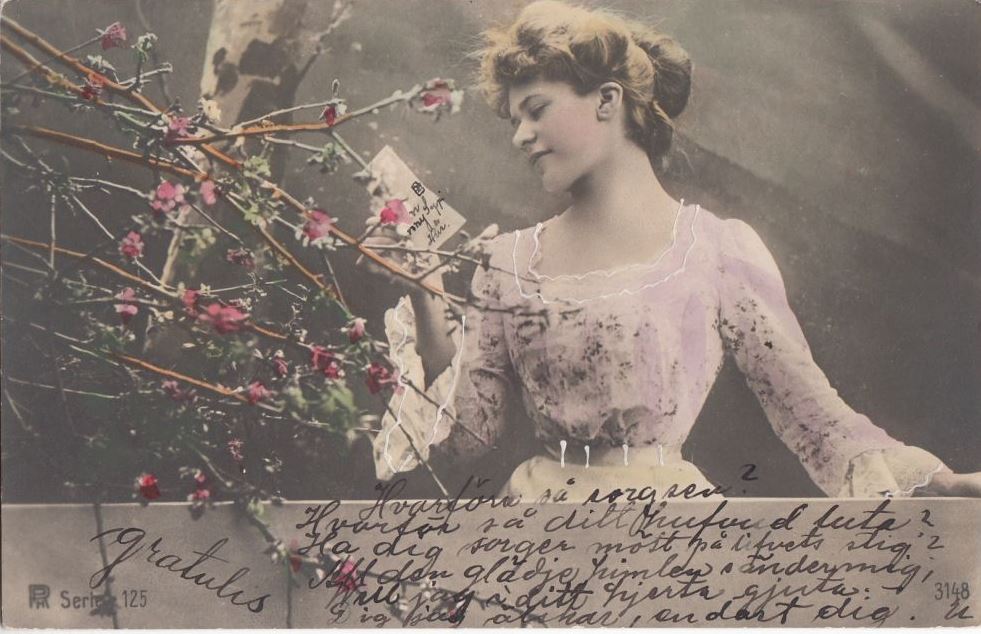 Hvarför så sorgsen?
Hvarför så ditt hufvud luta?
Ha dig sorger mött på lifvets stig?
All den glädje himlen sänder mig,
Vill jag i ditt hjerta gjuta.
Dig jag älskar, endast dig. U
gratulis
Serie 125
3148